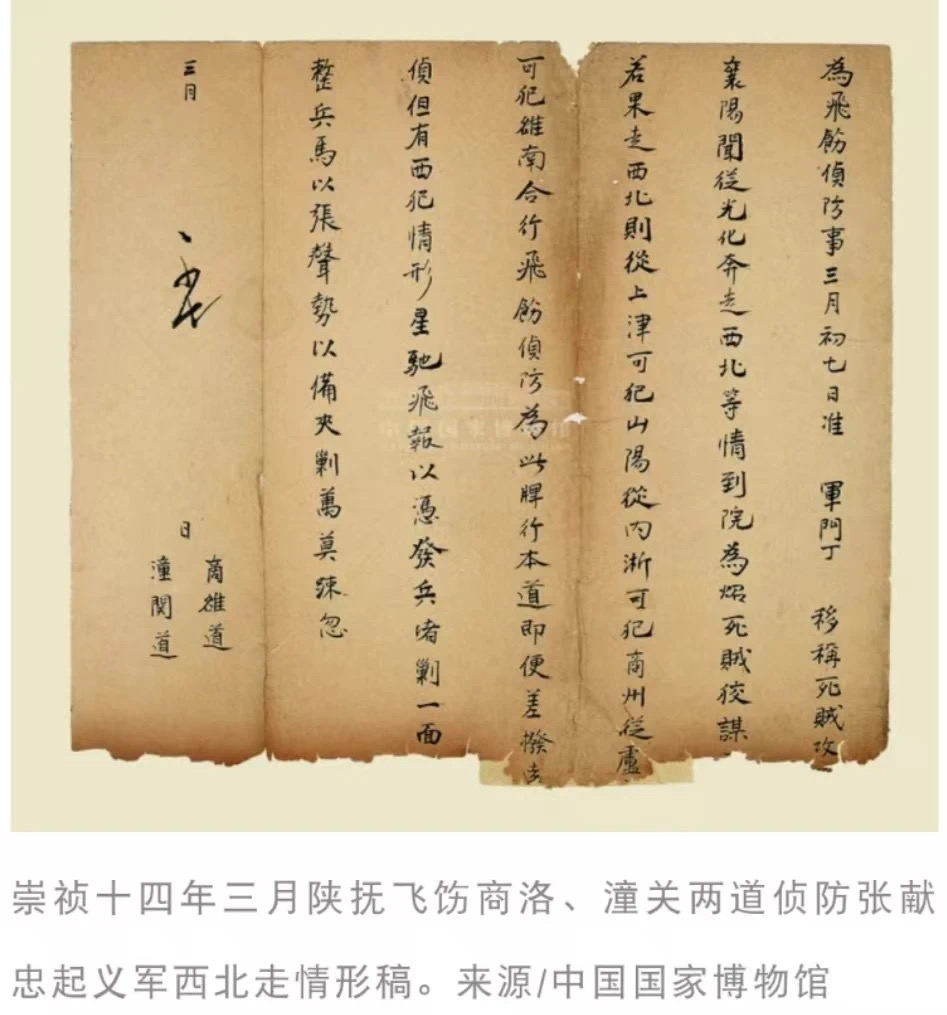 為飛飭偵防事三月初七日准 軍門丁 移稱死賊攻
襄陽聞從光化奔走西北等情到院為炤死賊狡謀
若果走西北則從上津可犯山陽從內淅可犯商州從盧
可犯雒南合行飛飭偵防為此牌行本道即便差撥
偵但有西犯情形星馳飛報以憑發兵堵剿一面
整兵馬以張聲勢以備夾剿萬莫疎忽
三月
日
商雒道
潼関道
中国国家博物馆
崇祯十四年三月陕抚飞饬商洛、潼关两道侦防张献
忠起义军西北走情形稿。来源/中国国家博物馆